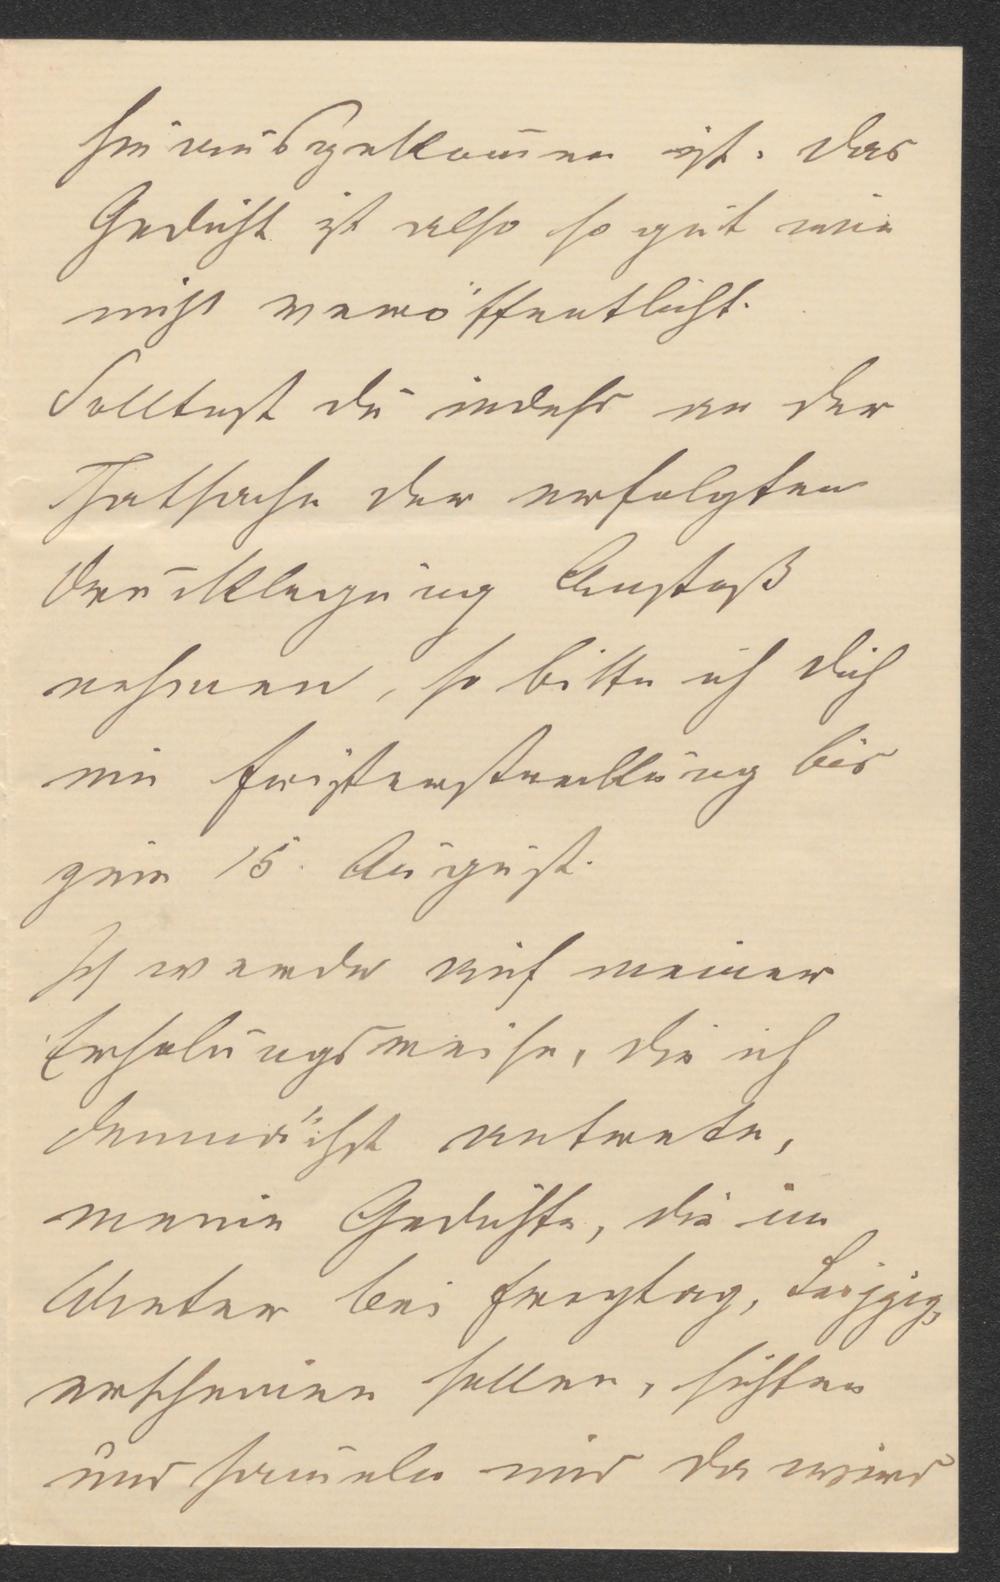 hinausgekom̅en ist. Das
Gedicht ist also so gut wie
nicht veröffentlicht.
Solltest du indess an der
Thatsache der erfolgten
Drucklegung Anstoß
nehmen, so bitte ich dich
um Fristerstreckung bis
zum 15. August.
Ich werde auf meiner
Erholungsreise, die ich
demnächst antrete,
meine Gedichte, die im
Winter bei Freytag, Leipzig,
erscheinen sollen, sichten
und sam̅eln und da wird